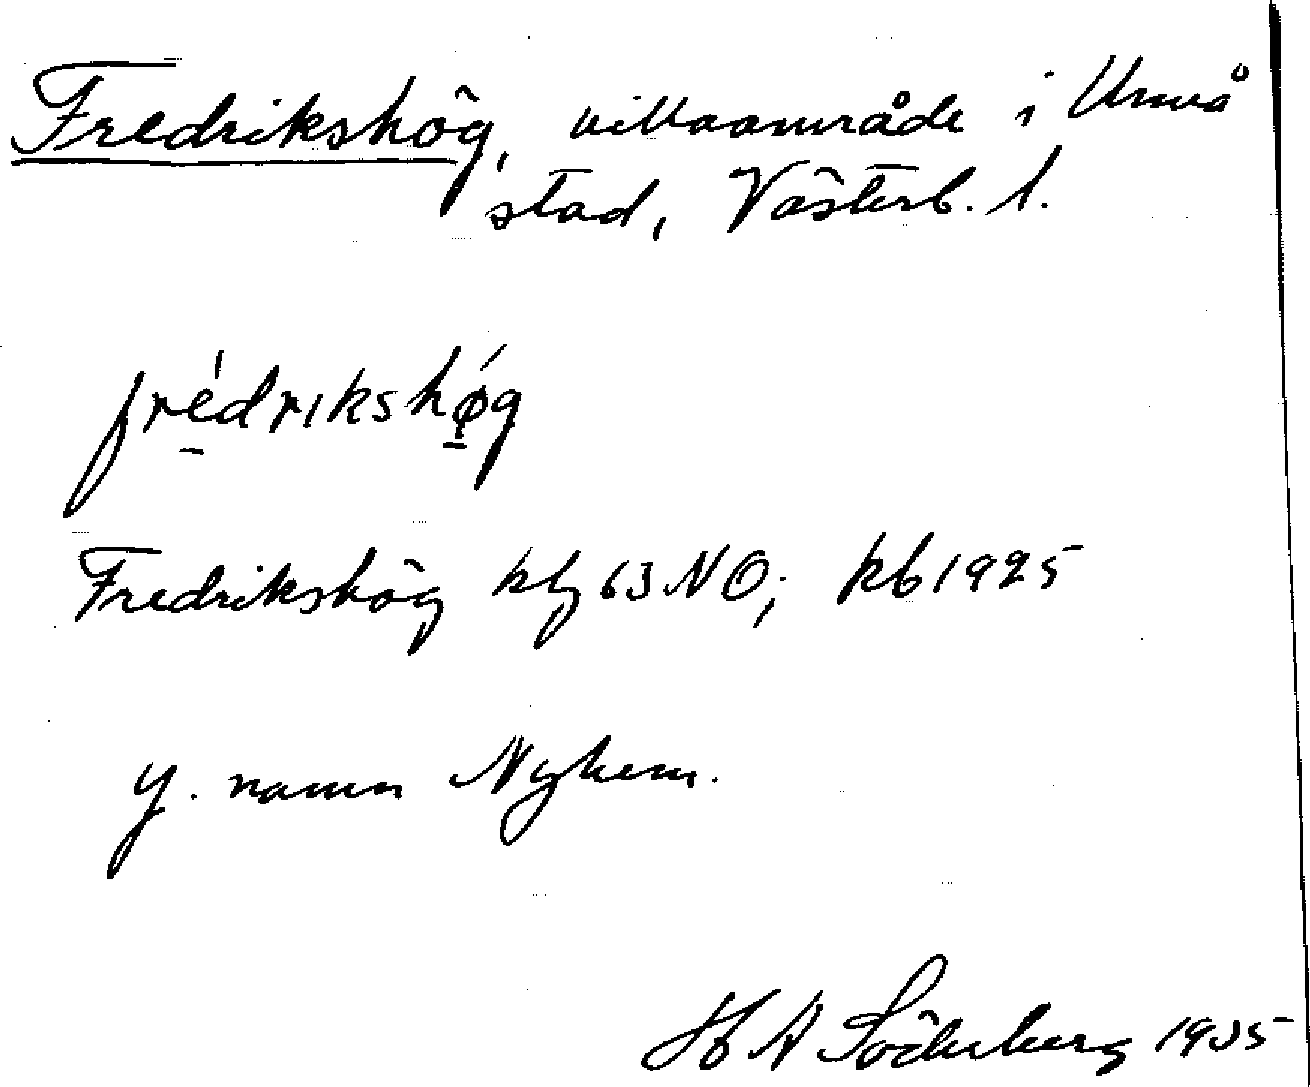 Fredrikshög, villaområde i Umeå
stad, Västerb. l.
frédrikshǿg
Fredrikshög kbl 63 NO; kb 1925
y. namn Nyhem.
H A Söderberg 1935